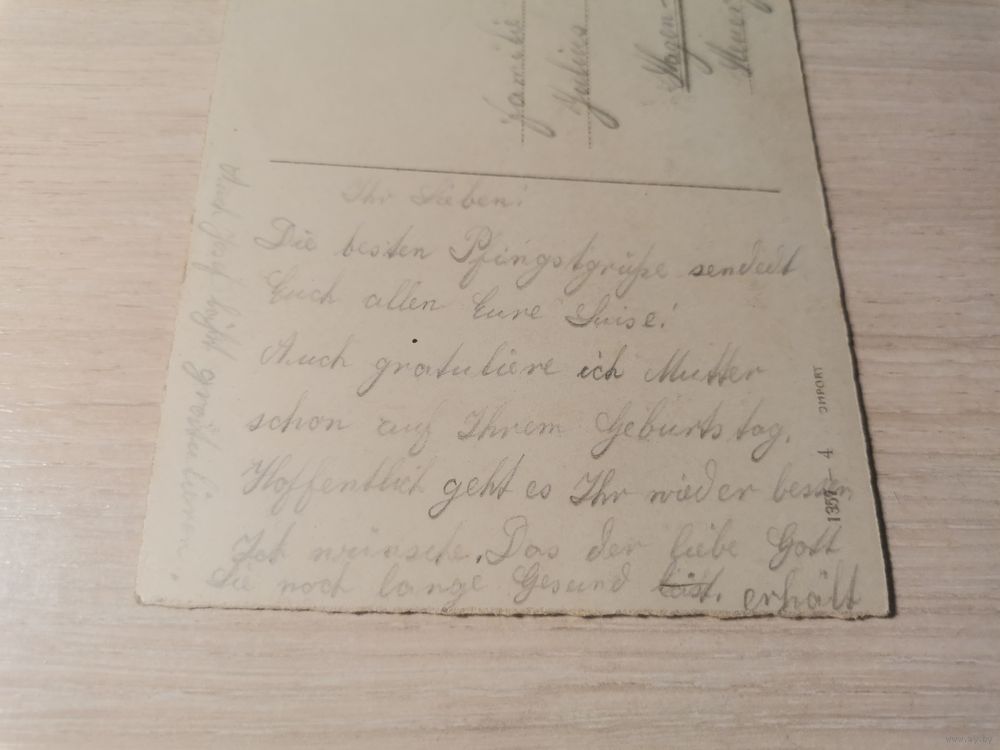 Familie
Julius
Hagen-
Ihr Lieben!
Die besten Pfingstgrüße sendedt
Euch allen Eure Luise!
Auch gratuliere ich Mutter
schon auf Ihrem Geburtstag.
Hoffentlich geht es Ihr wieder besser
Ich wünsche, Das der liebe Gott
Sie noch lange Gesund läst. erhält
Auch Josef läßt gratulieren.
1357 - 4 IMPORT